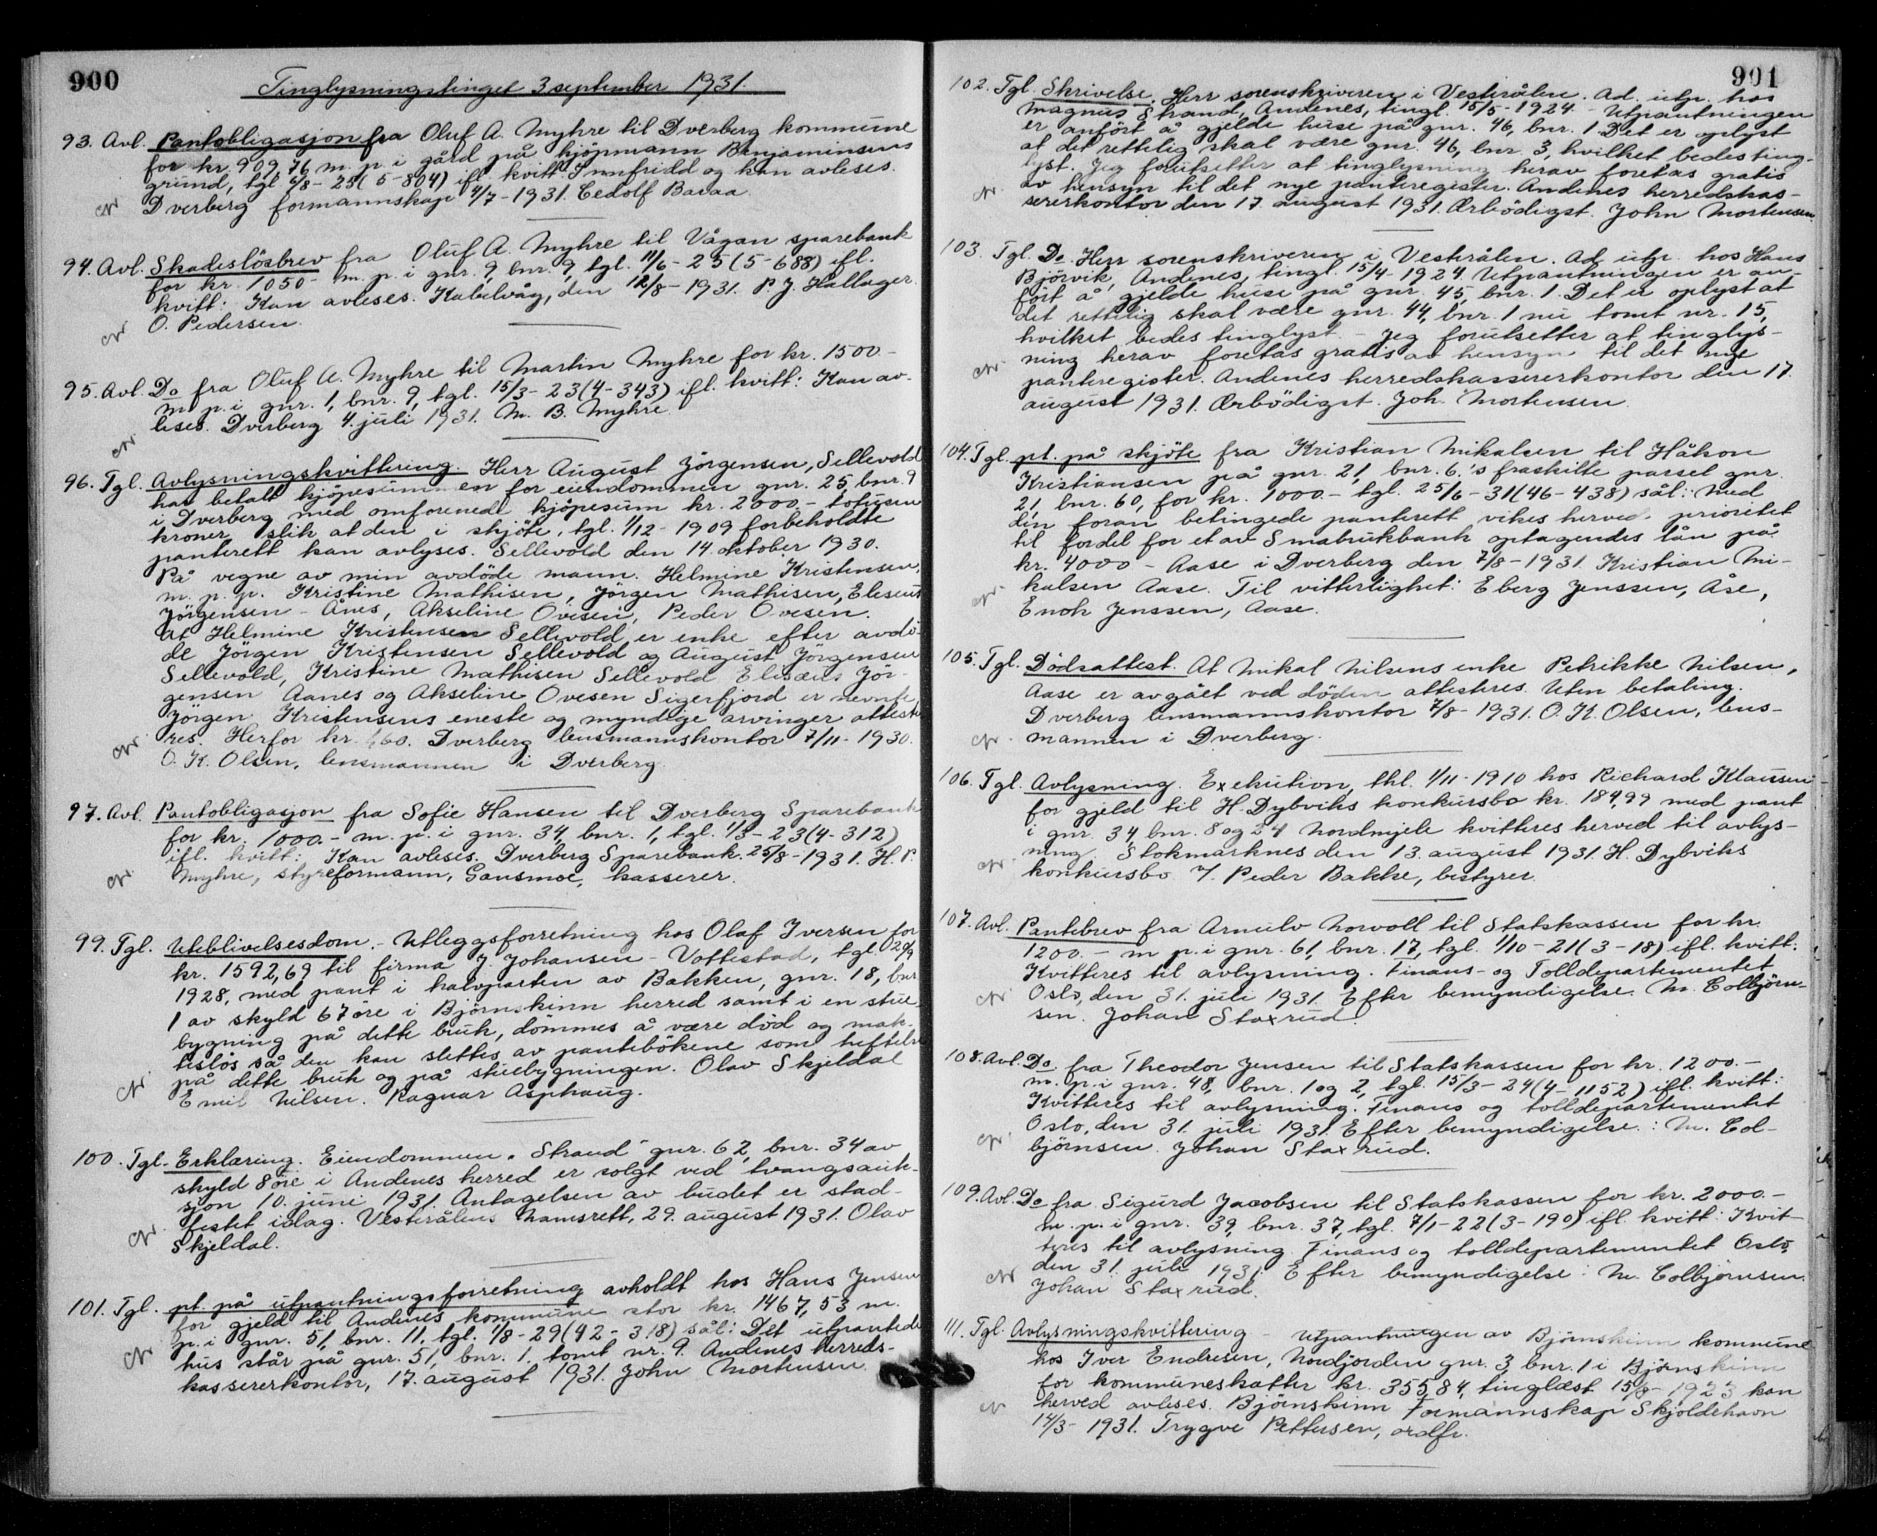 900
Tinglysningstinget 3 september 1931.
93. Avl. Pantobligasjon fra Oluf A. Myhre til Dverberg kommune
for kr. 909,76 m. p. i gård på kjöpmann Benjaminsens
grund, tgl. 2/8-25 (5-804) ifl. kvitt: Innfridd og kan avleses.
Dverberg formannskap 4/7-1931. Cedolf Baraa.
94. Avl. Skadeslösbrev fra Oluf A. Myhre til Vågan sparebank
for kr. 1050- m. p. i gnr. 9, bnr. 9, tgl. 11/6-25 (5-688) ifl.
kvitt: Kan avleses. Kabelvåg, den 12/8-1931. P. J. Hallager.
O. Pedersen.
95. Avl. Do fra Oluf A. Myhre til Martin Myhre for kr. 1500-
m. p. i gnr. 1, bnr. 9, tgl. 15/3-23 (4-343) ifl. kvitt: Kan av-
leses. Dverberg 4. juli 1931. M. B. Myhre.
96. Tgl. Avlysningskvittering. Herr August Jörgensen, Sellevold
har betalt kjöpesummen for eiendommen gnr. 25, bnr. 9
i Dverberg med omforenede kjöpesum kr. 2000- totusen
kroner, slik at den i skjöte, tgl. 1/12-1909 forbeholdte
panterett kan avlyses. Sellevold den 14 oktober 1930.
På vegne av min avdöde mann. Helmine Kristensen.
m. p. p. Kristine Mathisen, Jörgen Mathisen, Eleseus
Jörgensen - Ånes, Akseline Ovesen, Peder Ovesen.
At Helmine Kristensen Sellevold er enke efter avdö-
de Jörgen Kristensen Sellevold og August Jörgensen
Sellevold, Kristine Mathisen Sellevold Elesæus Jör-
gensen Aanes og Akseline Ovesen Sigerfjord er nevnte
Jörgen Kristensens eneste og myndige arvinger atteste-
res. Herfor kr. 1,60. Dverberg lensmannskontor 7/11-1930.
O. K. Olsen, lensmannen i Dverberg.
97. Avl. Pantobligasjon fra Sofie Hansen til Dverberg Sparebank
for kr. 1000.- m. p. i gnr. 34, bnr. 1, tgl. 1/3-23 (4-312)
ifl. kvitt: Kan avleses. Dverberg Sparebank. 25/8-1931. H. P.
Myhre, styreformann, Gansmoe, kasserer.
99. Tgl. Uteblivelsesdom. - Utleggsforretning hos Olaf Iversen for
kr. 1592,69 til firma J. Johansen - Vottestad, tgl 20/9
1928, med pant i halvparten av Bakken, gnr. 18, bnr
1 av skyld 67 öre i Björnskinn herred samt i en stue
bygning på dette bruk, dömmes å være död og mak-
teslös så den kan slettes av pantebökene som heftelse
på dette bruk og på stuebygningen. Olav Skjeldal
Emil Nilsen. Ragnar Asphaug.
100. Tgl. Erklæring. Eiendommen "Strand" gnr. 62, bnr. 34 av
skyld 8 öre i Andenes herred er solgt ved tvangsauk-
sjon 10. juni 1931. Antagelsen av budet er stad-
festet idag. Vesterålens Namsrett, 29. august 1931. Olav
Skjeldal.
101. Tgl. pt. på utpantningsforretning avholdt hos Hans Jensen
for gjeld til Andenes kommune stor kr. 1467,53 m.
p. i gnr. 51, bnr. 11, tgl. 1/8-29 (42-318) sål: Det utpantede
hus står på gnr. 51, bnr. 1, tomt nr. 9. Andenes herreds-
kassererkontor, 17. august 1931. John Mortensen.
901
102. Tgl. Skrivelse. Herr sorenskriveren i Vesterålen. Ad. utp. hos
Magnus Strand, Andenes, tingl. 15/5-1924 - Utpantningen
er anfört å gjelde huse på gnr. 46, bnr. 1. Det er oplyst
at det rettelig skal være gnr. 46, bnr. 3, hvilket bedes ting-
lyst. Jeg forutsetter at tinglysning herav foretas gratis
av hensyn til det nye panteregister. Andenes herredskas-
sererkontor den 17. august 1931. Ærbödigst. John Mortensen.
103. Tgl. Do. Herr sorenskriveren i Vesterålen. Ad. utp. hos Hans
Björvik, Andenes, tingl. 15/4-1924. Utpantningen er an-
fört å gjelde huse på gnr. 45, bnr. 1. Det er oplyst at
det rettelig skal være gnr. 44, bnr. 1 nu tomt nr. 15,
hvilket bedes tinglyst. - Jeg forutsetter at tinglys-
ning herav foretas gratis av hensyn til det nye
panteregister. Andenes herredskassererkontor den 17.
august 1931. Ærbödigst. Joh. Mortensen.
104. Tgl. pt. på skjöte fra Kristian Mikalsen til Håkon
Kristiansen på gnr. 21, bnr. 6.'s fraskilte parsel gnr.
21, bnr. 60, for kr. 1000.- tgl. 25/6-31 (46-438) sål: Med
den foran betingede panterett vikes herved prioritet
til fordel for et av Småbrukbank optagendes lån på
kr. 4000- Aase i Dverberg den 7/8-1931. Kristian Mi-
kalsen Aase. Til vitterlighet: Eberg Jenssen, Åse,
Enok Jenssen, Aase.
105. Tgl. Dödsattest. At Mikal Nilsens enke Petrikke Nilsen,
Aase er avgået ved döden attesteres. Uten betaling.
Dverberg lensmannskontor 7/8-1931. O. K. Olsen, lens-
mannen i Dverberg.
106. Tgl. Avlysning. Exekution, thl. 1/11-1910 hos Richard Klaussen
for gjeld til H. Dybviks konkursbo kr. 184,99 med pant
i gnr. 34, bnr. 8 og 24 Nordmjele kvitteres herved til avlys-
ning. Stokmarknes den 13. august 1931. H. Dybviks
konkursbo J. Peder Bakke, bestyrer.
107. Avl. Pantebrev fra Arnulv Norvoll til Statskassen for kr.
1200.- m p. i gnr. 61, bnr. 17, tgl. 1/10-21 (3-18) ifl. kvitt:
Kvitteres til avlysning. Finans- og Tolldepartementet
Oslo, den 31. juli 1931. Efter bemyndigelse. M. Colbjörn-
sen. Johan Staxrud.
108. Avl. Do fra Theodor Jensen til Statskassen for kr. 1200.-
m. p. i gnr. 48, bnr. 1 og 2, tgl. 15/3-24 (4-1152) ifl. kvitt:
Kvitteres til avlysning. Finans og tolldepartementet
Oslo, den 31. juli 1931. Efter bemyndigelse: M. Col-
björnsen. Johan Staxrud.
109. Avl. Do fra Sigurd Jacobsen til Statskassen for kr. 2000.-
m. p. i gnr. 39, bnr. 37, tgl. 7/1-22 (3-190) ifl. kvitt: Kvit-
teres til avlysning. Finans og tolldepartementet Oslo,
den 31. juli 1931. Efter bemyndigelse: M. Colbjörnsen.
Johan Staxrud.
111. Tgl. Avlysningskvittering - Utpantningen av Björnskinn kommune
hos Iver Endresen, Nordjorden gnr. 3 bnr. 1 i Björnskinn
for kommuneskatter kr. 355,84, tinglæst 15/8-1923 kan
herved avleses. Björnskinn Formannskap Skjoldehavn
14/3-1931. Trygve Pettersen, ordfr.